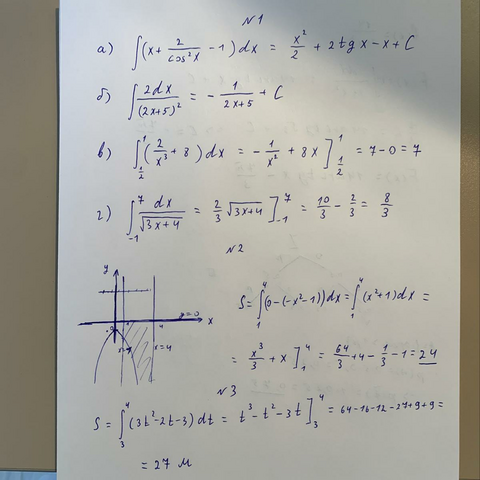 №1
а) ∫(x + 2/cos²x - 1)dx = x²/2 + 2tg x - x + C
б) ∫2dx/(2x+5)² = - 1/(2x+5) + C
в) ∫_{1/2}^{1}(2/x³ + 8)dx = - 1/x² + 8x]_{1/2}^{1} = 7-0 = 7
г) ∫_{-1}^{7} dx/√(3x+4) = 2/3 √(3x+4)]_{-1}^{7} = 10/3 - 2/3 = 8/3
№2
y
y=0
x
4
x=4
S = ∫_{1}^{4}(0-(-x²-1))dx = ∫_{1}^{4}(x²+1)dx =
= x³/3 + x]_{1}^{4} = 64/3 + 4 - 1/3 - 1 = 24
№3
S = ∫_{3}^{4}(3t²-2t-3)dt = t³-t²-3t]_{3}^{4} = 64-16-12-27+9+9=
= 27 м